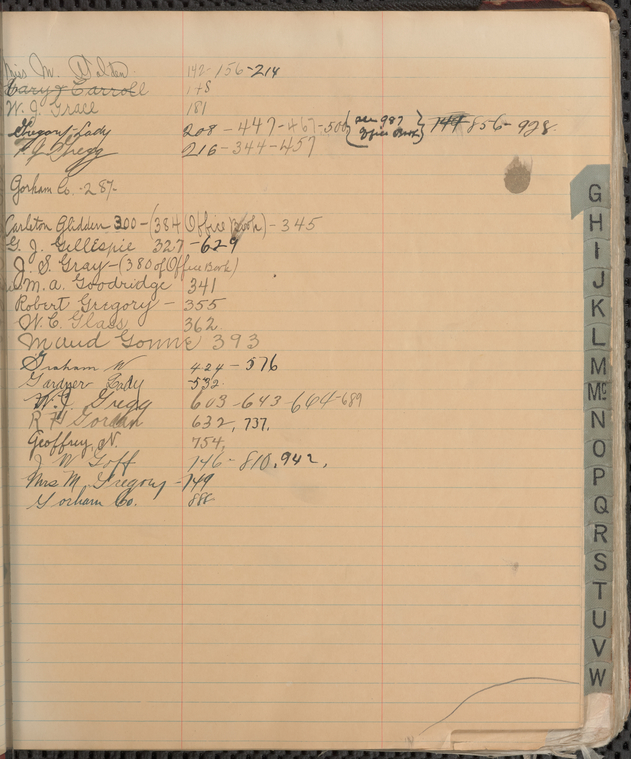 Miss M. 142-156-214
Cary & Carroll 148
W. J. Grace 181
Gregory-Lady 208-447-467-506 {see 987 Office Book} 744-856-928.
F. J. Gregg 216-344-457
Gorham Co. -287-
Carleton Glidden 300-(384 Office Book)-345
G. J. Gillespie 327-629
J. S. Gray-(380 of Office Book)
M. A. Goodridge 341
Robert Gregory - 355
W. C. Glass 362.
Maud Gonne 393
Graham W 424-576
Gardner Lady 532.
W. J. Gregg 603-643-644-689
R F Gordan 632, 737.
Geoffrey, N. 754,
J W Goff 746-810, 942,
Mrs M. Gregory - 749
Gorham Co. 888
G
H
I
J
K
L
M
Mc
N
O
P
Q
R
S
T
U
V
W